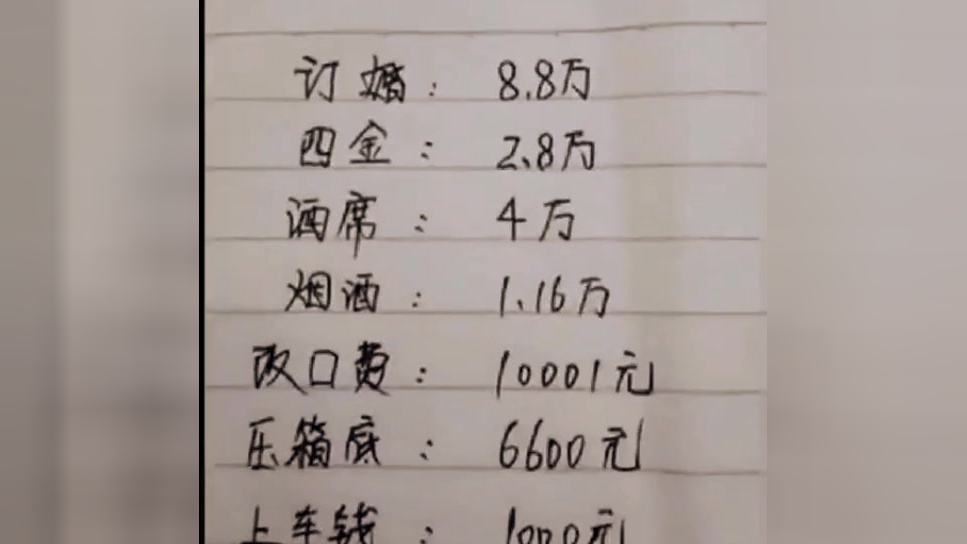 订婚：8.8万
四金：2.8万
酒席：4万
烟酒：1.16万
改口费：10001元
压箱底：6600元
上车钱：1000元